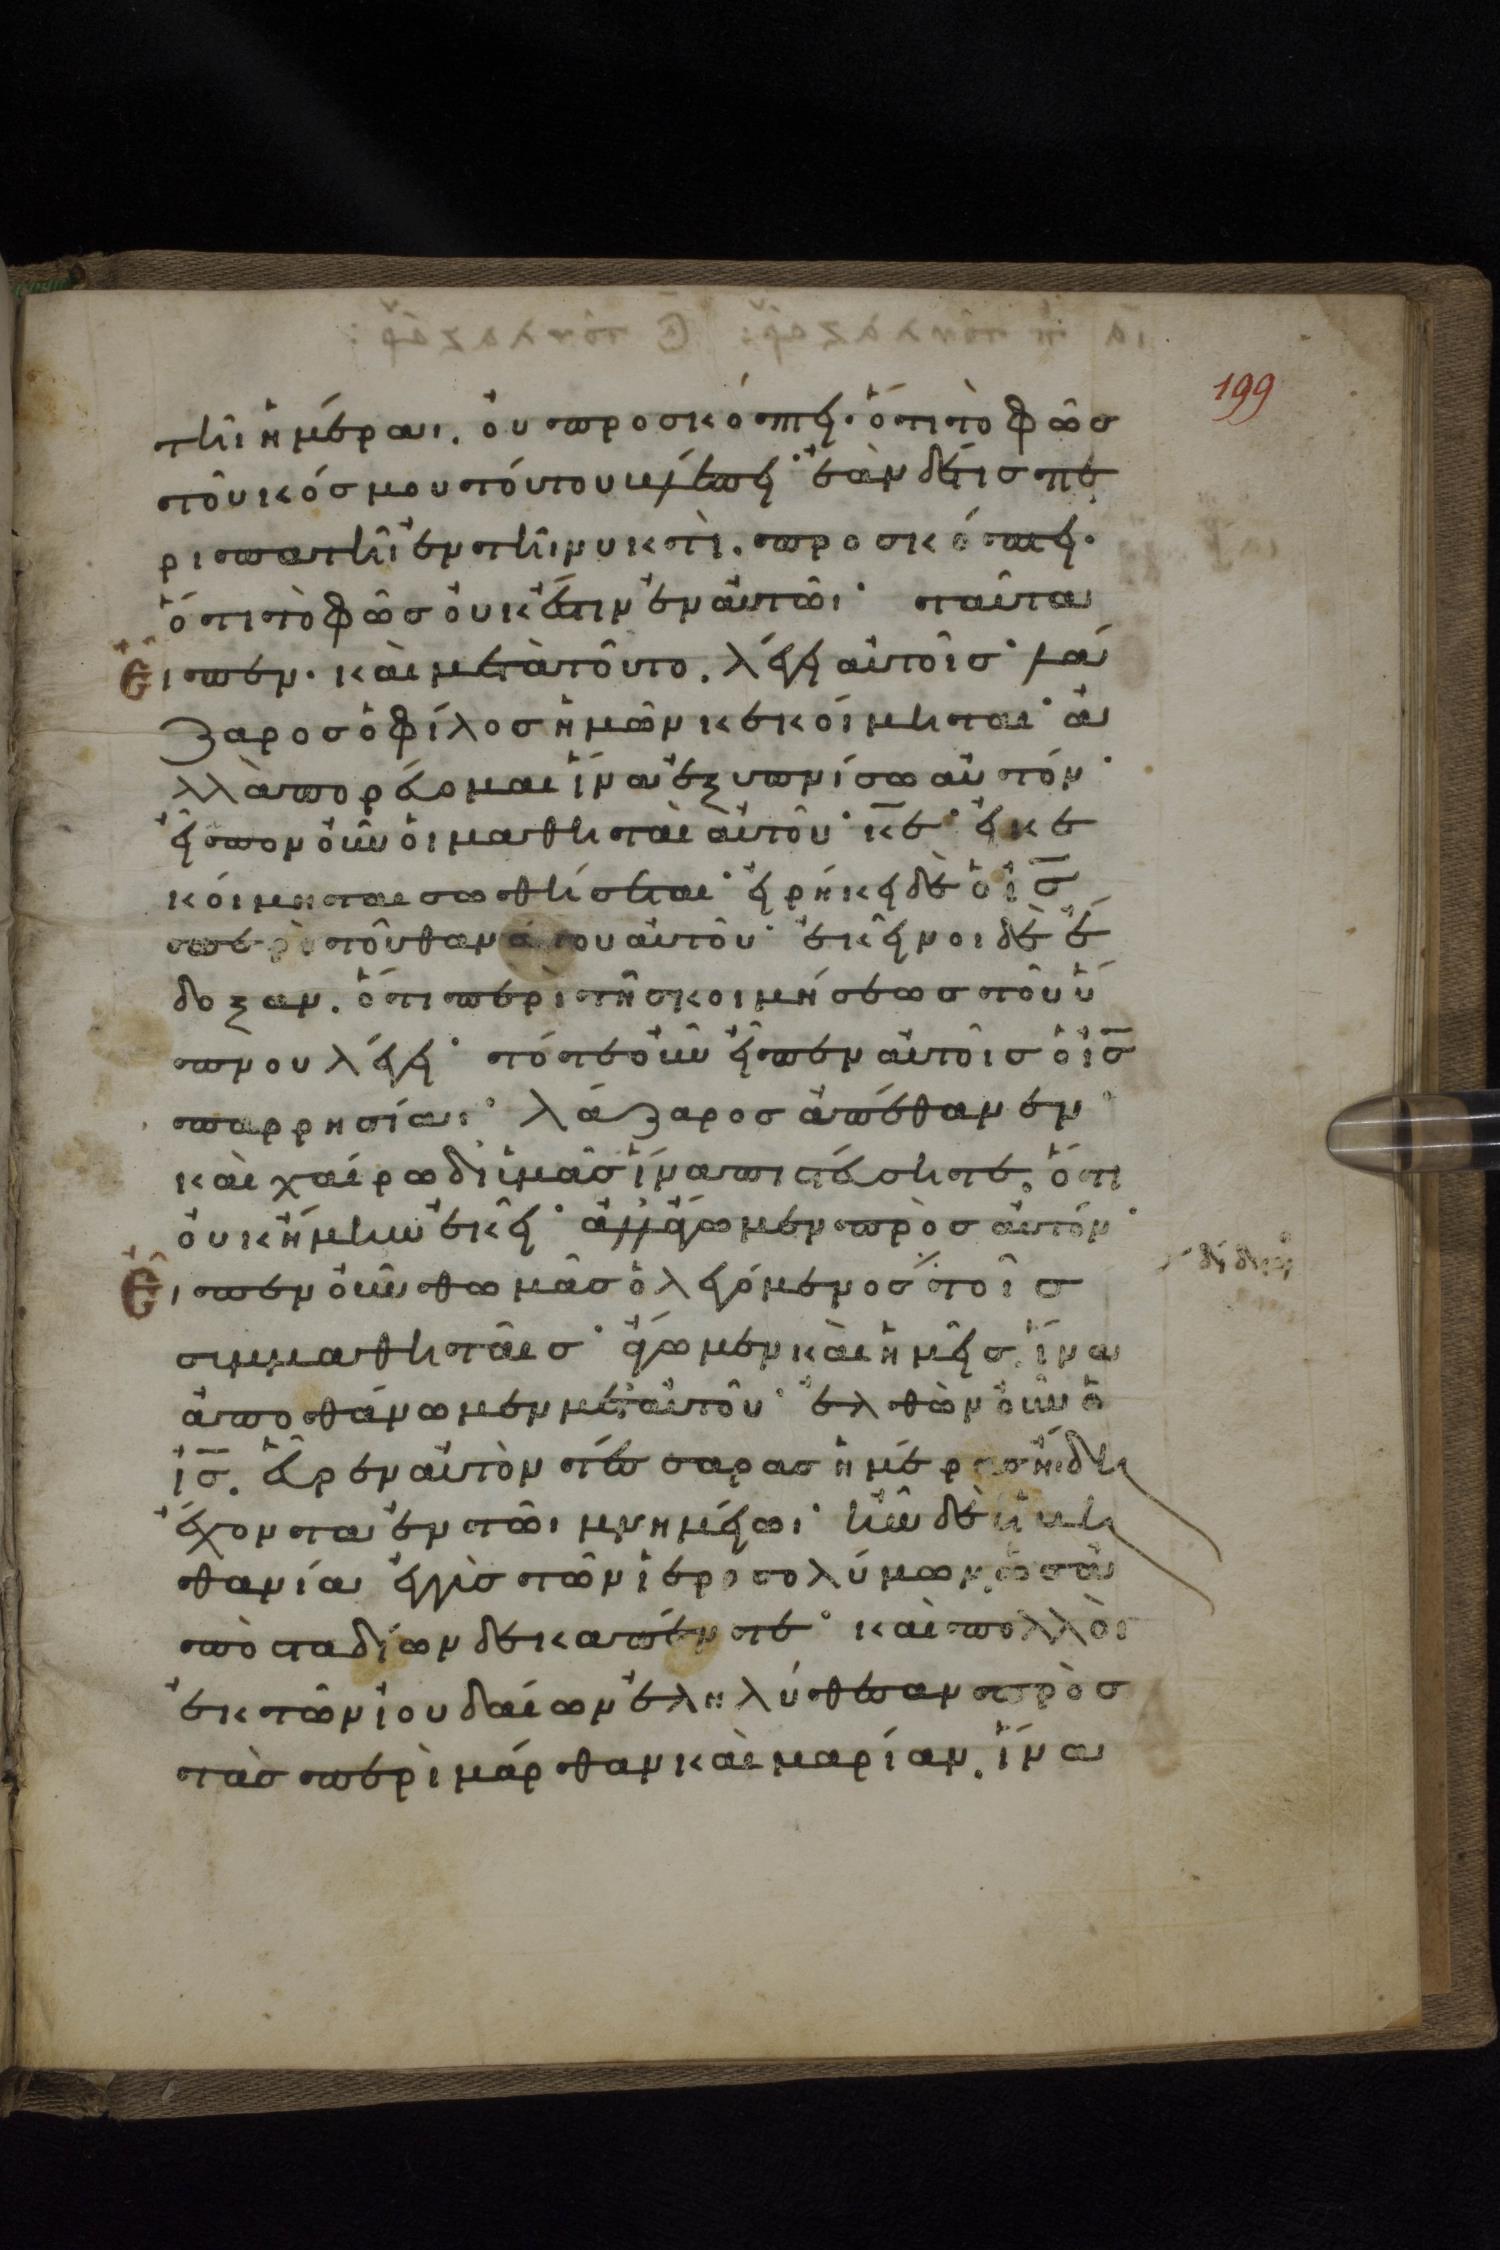 199
τῆι ἡμέραι. οὐ προσκόπτει· ὅτι τὸ φῶσ
τοῦ κόσμου τούτου βλέπει· ἐὰν δέ τισ πε
ριπατῆι ἐν τῆι νυκτὶ. προσκόπτει·
ὅτι τὸ φῶσ οὐκ ἔστιν ἐν αὐτῶι· ταῦτα
εἶπεν· καὶ μετὰ τοῦτο. λέγει αὐτοῖσ· λά
ζαροσ ὁ φίλοσ ἡμῶν κεκοίμηται· ἀ
λλὰ πορεύομαι ἵνα ἐξυπνίσω αὐτόν·
εἶπον οὖν οἱ μαθηταὶ αὐτοῦ· κε· εἰ κε
κοίμηται σωθήσεται· εἰρήκει δὲ ὁ ισ
περὶ τοῦ θανάτου αὐτοῦ· ἐκεῖνοι δὲ ἔ
δοξαν. ὅτι περὶ τῆσ κοιμήσεωσ τοῦ ὕ
πνου λέγει· τότε οὖν εἶπεν αὐτοῖσ ὁ ισ
παρρησίαι· λάζαροσ ἀπέθανεν·
καὶ χαίρω δι ὑμᾶσ ἵνα πιστεύσητε. ὅτι
οὐκ ἤμην ἐκεῖ· ἀλλ ἄγωμεν πρὸσ αὐτόν·
εἶπεν οὖν θωμᾶσ ὁ λεγόμενοσ τοῖσ
συμμαθηταῖσ· ἄγωμεν καὶ ἡμεῖσ. ἵνα
ἀποθάνωμεν μετ αὐτοῦ· ἐλθὼν οὖν ὁ
ισ. εὗρεν αὐτὸν τέσσαρασ ἡμέρασ ἤδη
ἔχοντα ἐν τῶι μνημείωι· ἦν δὲ ἡ βη
θανία ἐγγὺσ τῶν ἱεροσολύμων. ὡσ ἀ
πὸ σταδίων δεκαπέντε· καὶ πολλοὶ
ἐκ τῶν ἰουδαίων ἐληλύθεισαν πρὸσ
τὰσ περὶ μάρθαν καὶ μαρίαν. ἵνα